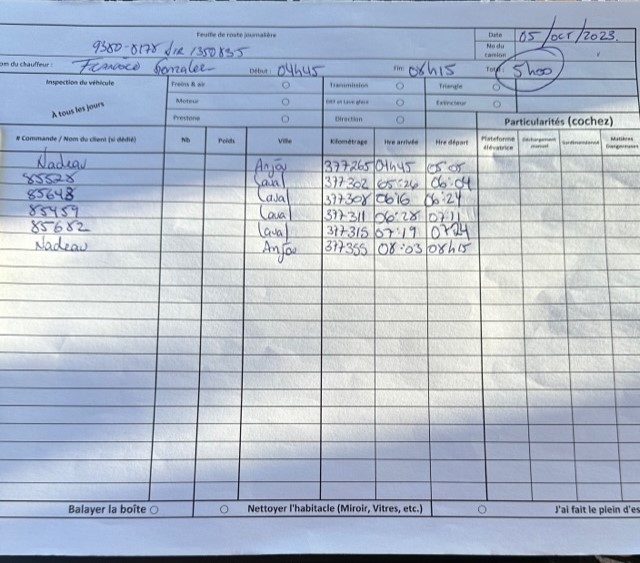 Feuille de route journalière
Date 05/oct/2023.
9380-8178 1350835
No du camion
om du chauffeur : Gonzalez Début : 04h45 Fin : 08h15 Total : 5h00
Inspection du véhicule
À tous les jours
Freins & air Transmission Triangle
Moteur Extincteur
Prestone Direction
Particularités (cochez)
# Commande / Nom du client (si dédié) Nb Poids Ville Kilométrage Hre arrivée Hre départ Plateforme élévatrice Déchargement manuel Surdimensionné Matières Dangereuses
Nadeau Anjou 377265 04h45 05:05
85528 Laval 377302 05:26 06:04
85648 Laval 377308 06:16 06:24
85459 Laval 377311 06:28 07:11
85682 Laval 377315 07:19 07:24
Nadeau Anjou 377355 08:03 08h15
Balayer la boîte Nettoyer l'habitacle (Miroir, Vitres, etc.) J'ai fait le plein d'es